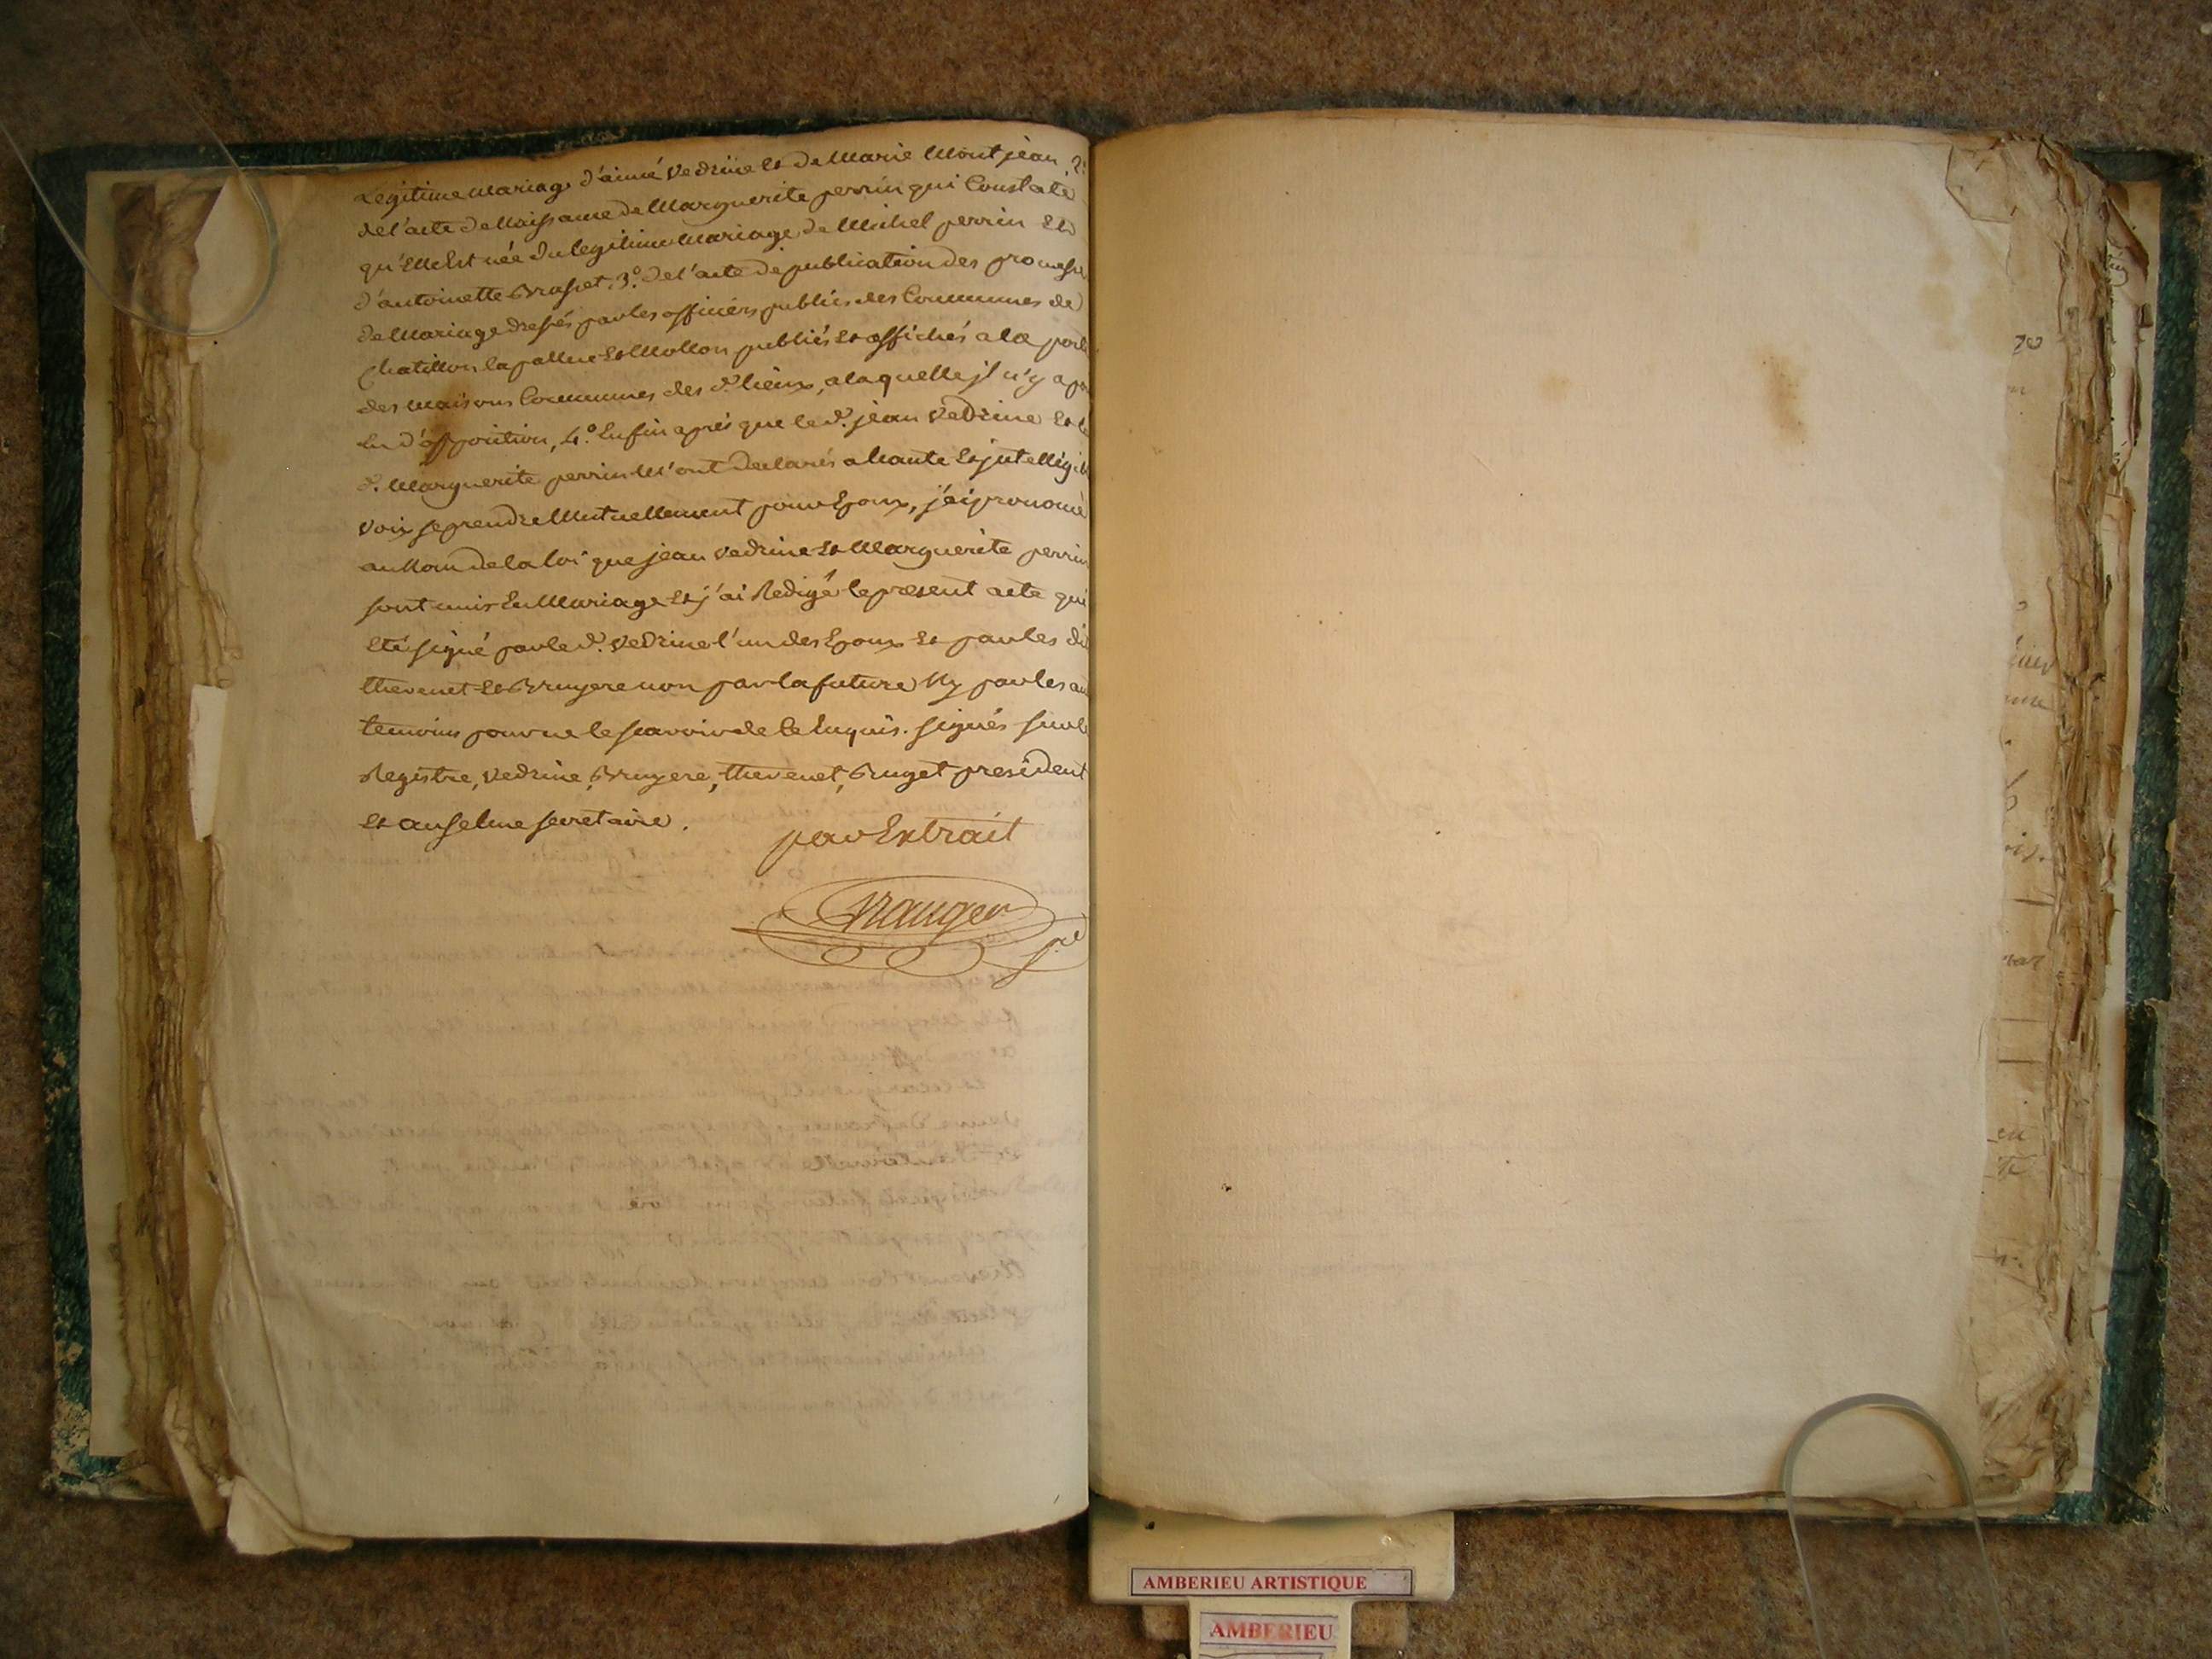 Legitime mariage d'aimé vedrine et de Marie Montjean 2º
de l'acte de Naissance de Marguerite perrin qui Constate
qu'elle Est née du legitime Mariage de Michel perrin Et
d'antoinette 3.º de l'acte de publication des promesse
de Mariage dressés par les officiers publics des Communes de
Chatillon la pallue et Mollon publiés et affichés a la porte
des maisons Communes des d. lieux, a laquelle jl n'y a pas
Eu d'opposition, 4.º Enfin après que le d. jean vedrine Et la
d. Marguerite perrin M'ont declarés a haute Et jntelligible
voix se prendre Mutuellement pour Epoux, j'ai prononcé
au Nom de la loi que jean vedrine et Marguerite perrin
sont unis En Mariage Et j'ai Redigé le present acte qui
Eté signé par le d. vedrine l'un des Epoux Et par les dit
thevenet Et Bruyere non par la future Ny par les au
temoins pour ne le scavoir de ce Enquis. signés sur le
Registre, vedrine, Bruyere, thevenet, Bruget president
Et anselme secretaire.
par Extrait
AMBERIEU ARTISTIQUE
AMBERIEU